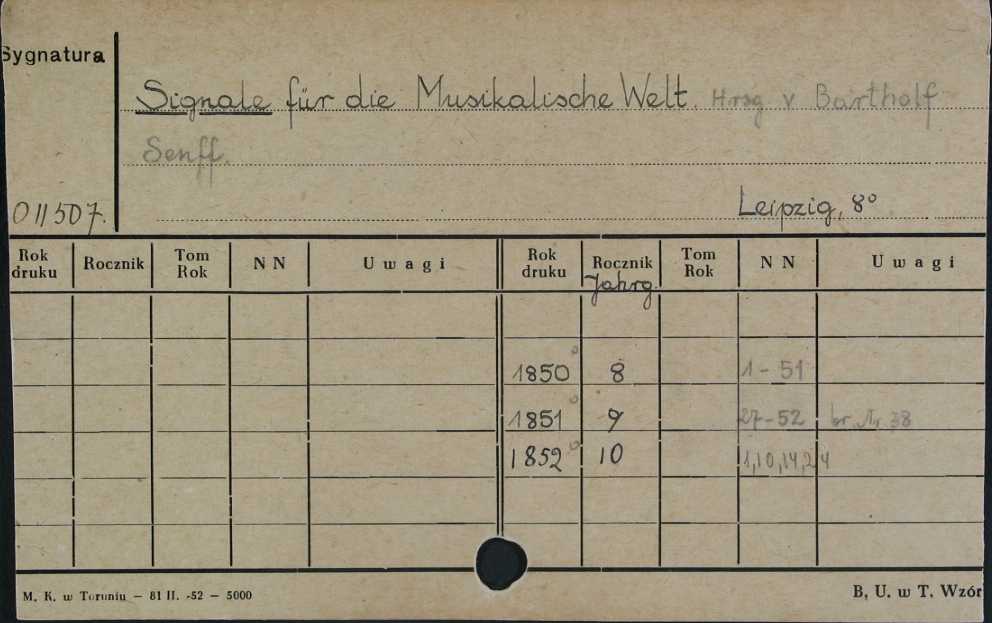 Sygnatura
Signale für die Musikalische Welt. Hrsg v Bartholf
Senff.
011507.
Leipzig, 8°
Rok druku Rocznik Tom Rok NN Uwagi Rok druku Rocznik Tom Rok NN Uwagi
Jahrg.
1850° 8 1-51
1851° 9 27-52 br. Nr 38
1852° 10 1,10,14,24
M. K. w Toruniu — 81 II. -52 — 5000
B, U. w T. Wzór